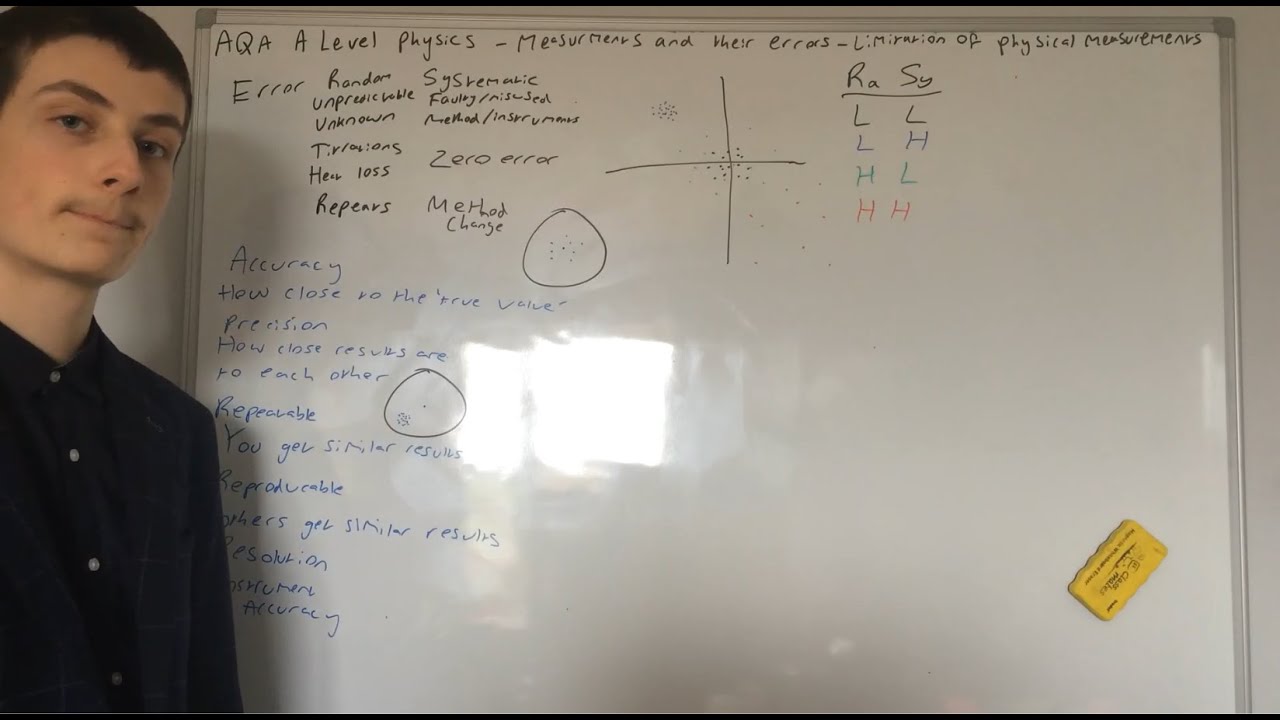 AQA A Level Physics - Measurments and their errors - Limitation of physical measurements
Error Random Systematic
Unpredictable Faulty/misused
Unknown Method/instruments
Titrations Zero error
Heat loss
Repeats Method
Change
Ra Sy
L L
L H
H L
H H
Accuracy
How close to the 'true value'
Precision
How close results are
to each other
Repeatable
You get similar results
Reproducable
others get similar results
Resolution
Instrument
Accuracy
Class
mates